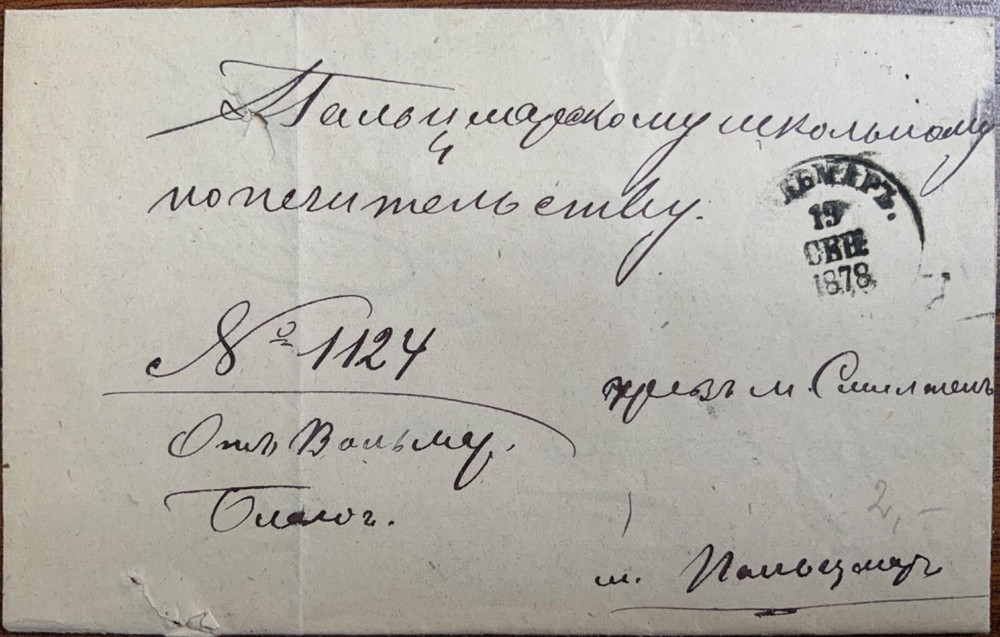 Пальцмарскому школьному
попечительству.
ЬМАРЪ.
19
СЕН
1878
№ 1124
чрезъ м. Смилтенъ
Отъ Вольмар.
Благоч.
2,-
м. Пальцмаръ